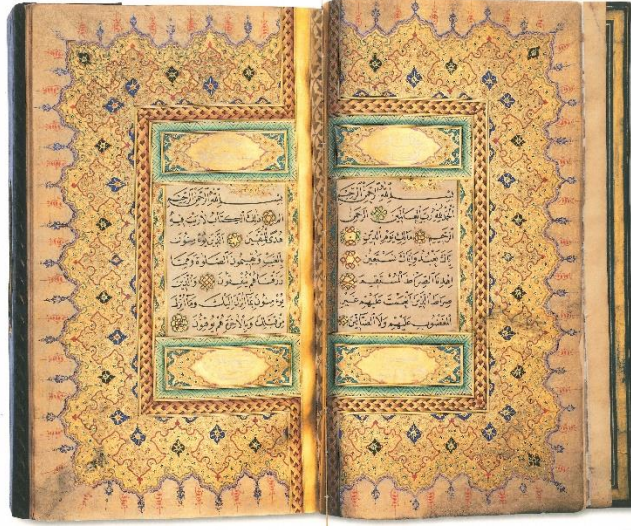 بسم الله الرحمن الرحيم
الحمد لله رب العالمين الرحمن
الرحيم مالك يوم الدين
إياك نعبد وإياك نستعين
اهدنا الصراط المستقيم
صراط الذين أنعمت عليهم غير
المغضوب عليهم ولا الضالين
بسم الله الرحمن الرحيم
الم ذلك الكتاب لا ريب فيه
هدى للمتقين الذين يؤمنون
بالغيب ويقيمون الصلوة ومما
رزقناهم ينفقون والذين
يؤمنون بما أنزل إليك وما أنزل
من قبلك وبالآخرة هم يوقنون